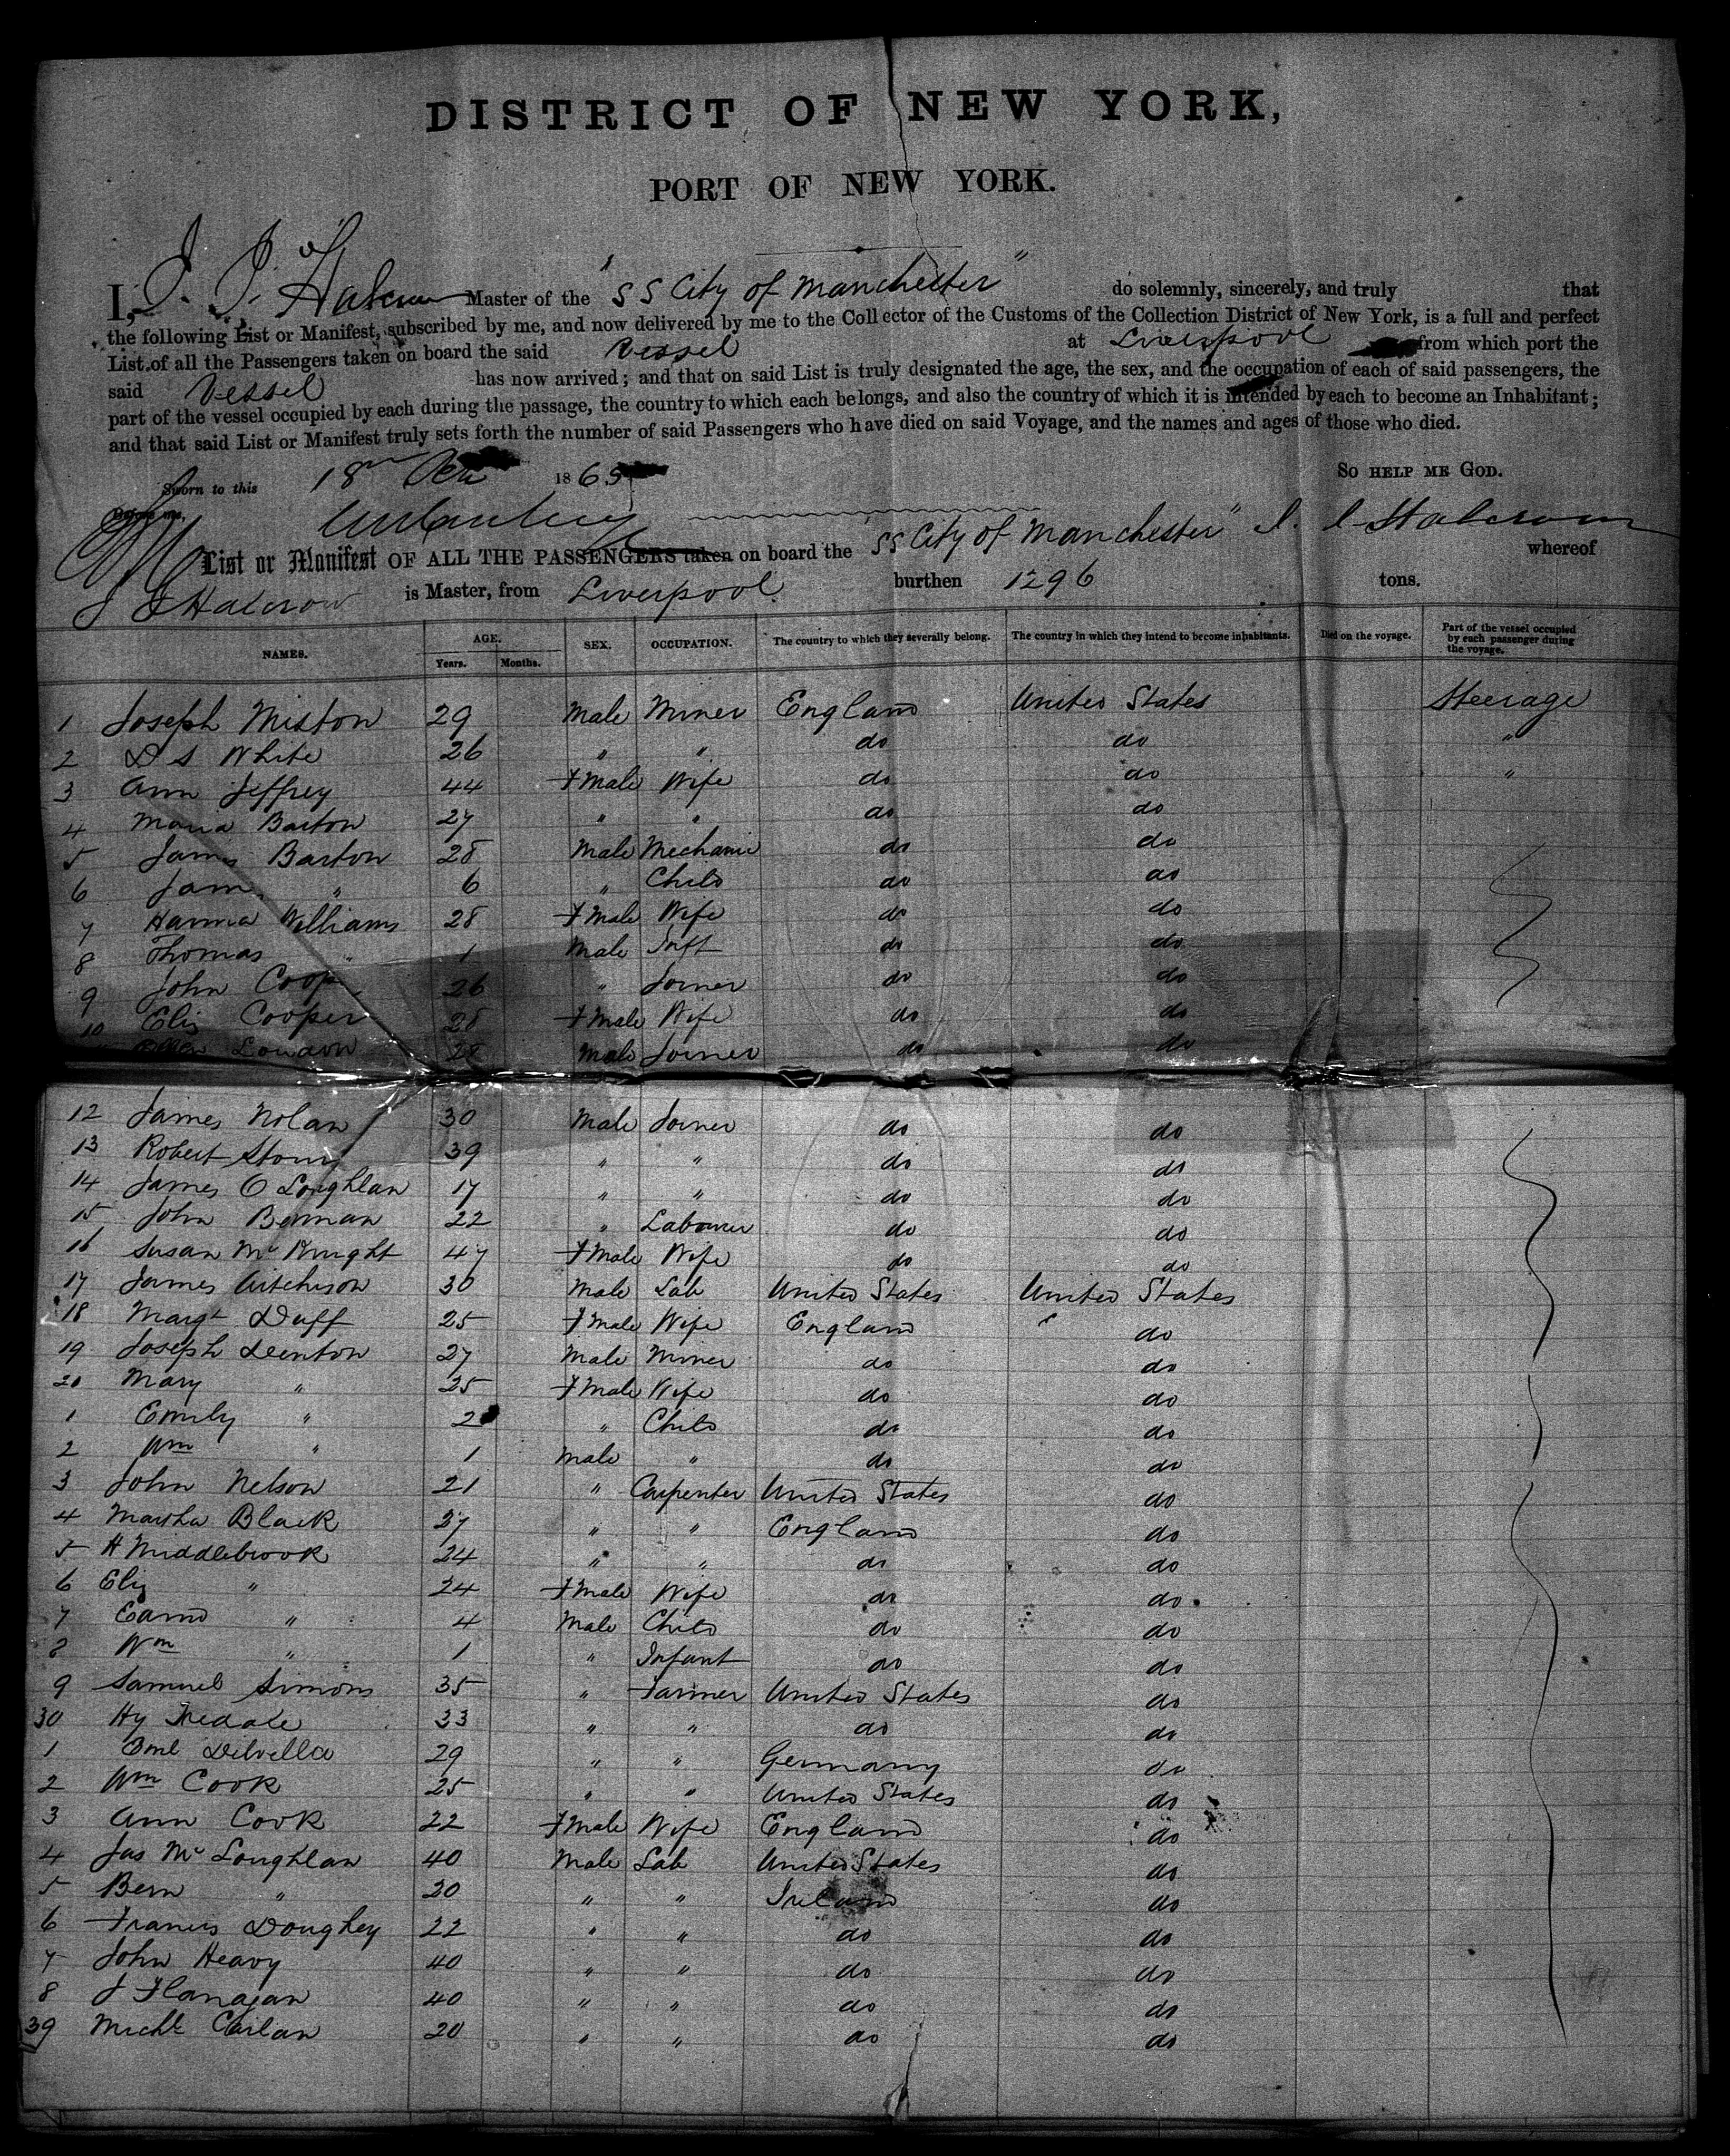 DISTRICT OF NEW YORK,
PORT OF NEW YORK.
I, Master of the "SS City of Manchester" do solemnly, sincerely, and truly that
the following List or Manifest, subscribed by me, and now delivered by me to the Collector of the Customs of the Collection District of New York, is a full and perfect
List of all the Passengers taken on board the said Vessel at Liverpool from which port the
said Vessel has now arrived; and that on said List is truly designated the age, the sex, and the occupation of each of said passengers, the
part of the vessel occupied by each during the passage, the country to which each belongs, and also the country of which it is intended by each to become an Inhabitant;
and that said List or Manifest truly sets forth the number of said Passengers who have died on said Voyage, and the names and ages of those who died.
Sworn to this 18 1865 SO HELP ME GOD.
Before me,
List or Manifest OF ALL THE PASSENGERS taken on board the SS City of Manchester" whereof
J J Halcrow is Master, from Liverpool burthen 1296 tons.
NAMES. AGE. Years. Months. SEX. OCCUPATION. The country to which they severally belong. The country in which they intend to become inhabitants. Died on the voyage. Part of the vessel occupied by each passenger during the voyage.
1 Joseph Miston 29 Male Miner England United States Steerage
2 D S White 26 " " do do "
3 Ann Jeffrey 44 Fmale Wife do do "
4 Maria Barton 27 " " do do
5 James Barton 28 Male Mechanic do do
6 " 6 " Child do do
7 Hanna Williams 28 Fmale Wife do do
8 Thomas " 1 Male Inft do do
9 John 26 " Joiner do do
10 Eliz Cooper 28 Fmale Wife do do
London 28 Male Joiner do do
12 James Nolan 30 Male Joiner do do
13 Robert 39 " " do do
14 James O Loughlan 17 " " do do
15 John 22 " Labourer do do
16 Susan McKnight 47 Fmale Wife do do
17 James Aitchison 30 Male Lab United States United States
18 Margt Duff 25 Fmale Wife England do
19 Joseph Denton 27 Male Miner do do
20 Mary " 25 Fmale Wife do do
1 Emily " 2 " Child do do
2 Wm " 1 Male " do do
3 John Nelson 21 " Carpenter United States do
4 Martha Black 37 " " England do
5 H Middlebrook 24 " " do do
6 Eliz " 24 Fmale Wife do do
7 " 4 Male Child do do
8 Wm " 1 " Infant do do
9 Samuel Simons 35 " Farmer United States do
30 Hy 33 " " do do
1 29 " " Germany do
2 Wm Cook 25 " " United States do
3 Ann Cook 22 Fmale Wife England do
4 Jas McLoughlan 40 Male Lab United States do
5 Bern " 20 " " Ireland do
6 Francis Doughey 22 " " do do
7 John Heavy 40 " " do do
8 J Flanagan 40 " " do do
39 Michl 20 " " do do